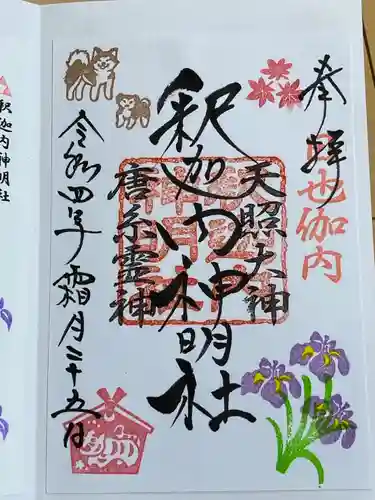 奉拝
也伽内
天照大神
釈迦内神明社
唐糸霊神
令和四年霜月二十五日
釈迦内神明社